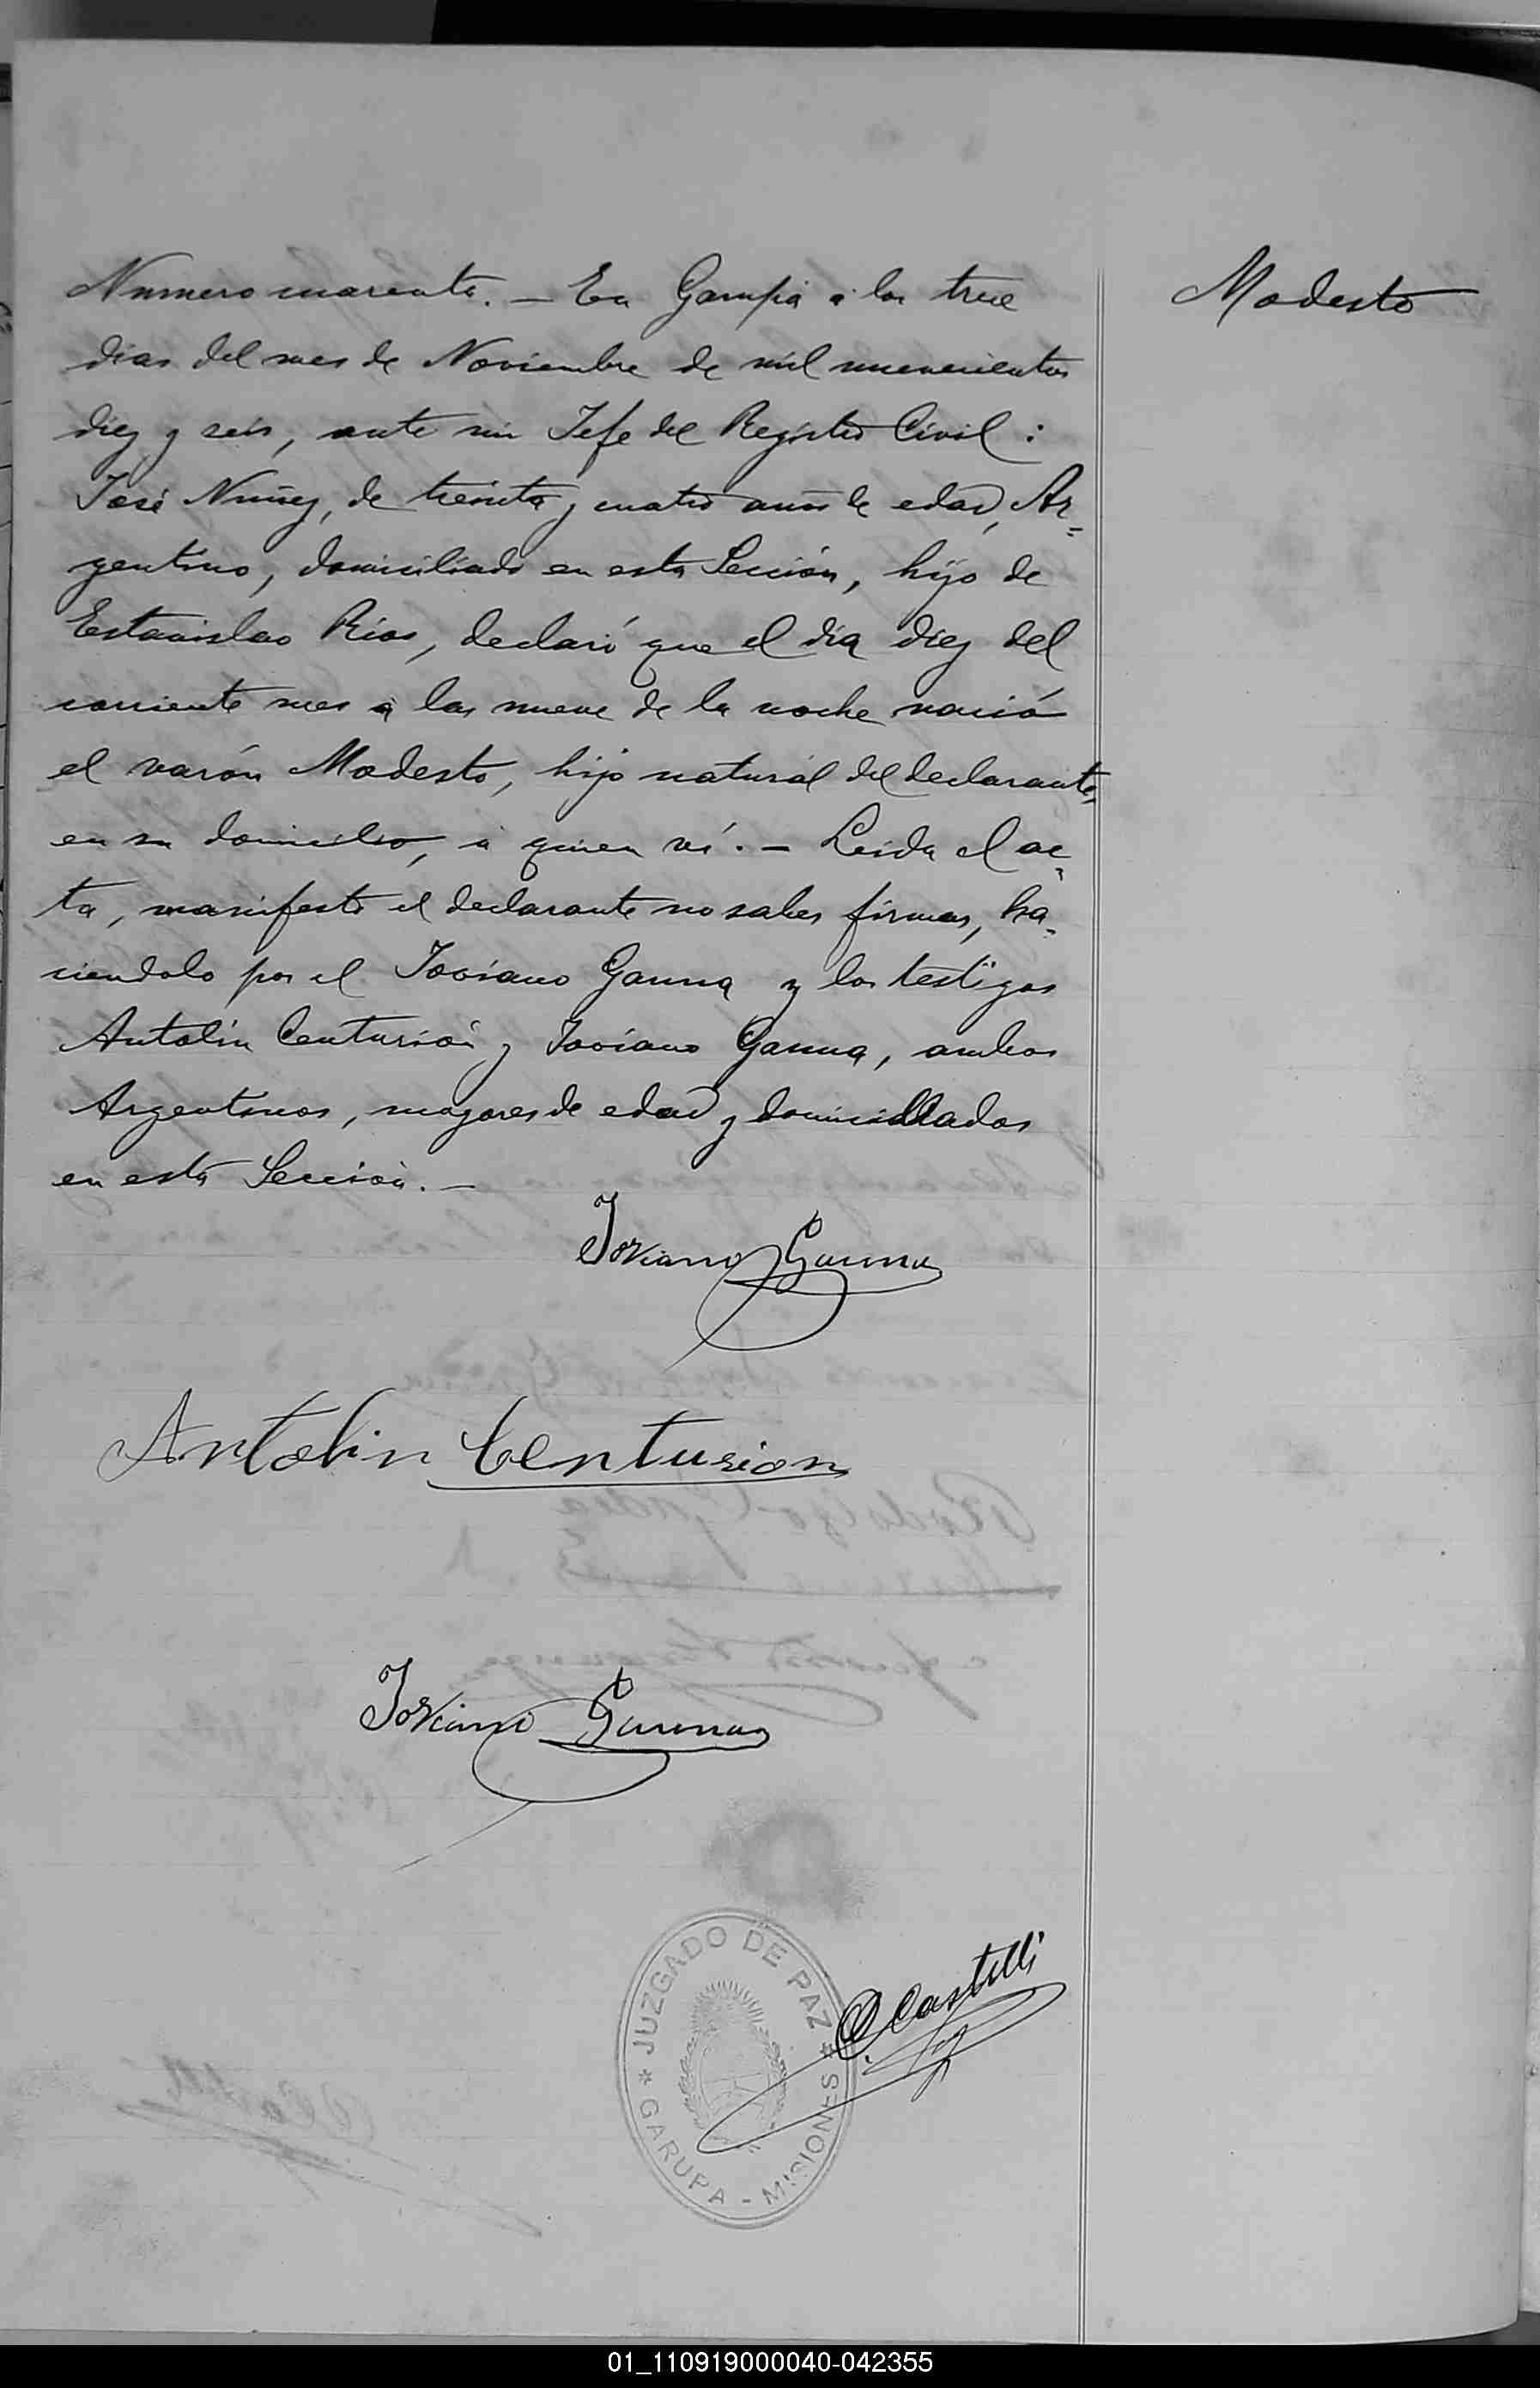 Numero cuarenta. — En Garupá á los trece
dias del mes de Noviembre de mil novecientos
diez y seis, ante mi Jefe del Registro Civil :
José Nuñez, de treinta y cuatro años de edad, Ar=
gentino, domiciliado en esta Sección, hijo de
Estanislao Rios, declaró que el día diez del
corriente mes á las nueve de la noche nació
el varón Modesto, hijo natural del declarante,
en su domicilio, á quien ví. — Leida el ac-
ta, manifestó el declarante no saber firmar, ha-
ciendolo por el Joviano Gauna y los testigos
Antolín Centurión y Joviano Gauna, ambos
Argentinos, mayores de edad y domiciliados
en esta Sección. —
Modesto
Joviano Gauna
Antolin Centurion
Joviano Gauna
JUZGADO DE PAZ
* GARUPA - MISIONES *
Castelli
01_110919000040-042355